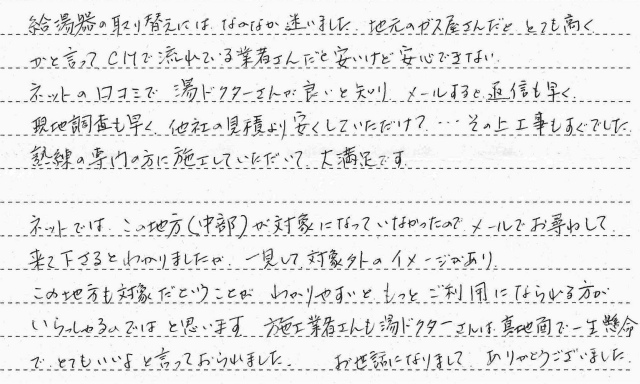 給湯器の取り替えには、なかなか迷いました。地元のガス屋さんだと とても高く
かと言って CMで流れている業者さんだと安いけど安心できない
ネットの口コミで 湯ドクターさんが良いと知り メールすると、返信も早く
現地調査も早く、他社の見積より安くしていただけて…その上工事もすぐでした
熟練の専門の方に施工していただいて 大満足です
ネットでは、この地方(中部)が対象になっていなかったので メールでお尋ねして
来て下さるとわかりましたが、一見して対象外のイメージがあり
この地方も対象だということが わかりやすいと もっと ご利用になられる方が
いらっしゃるのではと思います 施工業者さんも湯ドクターさんは、真地面で一生懸命
で、とてもいいよと言っておられました。 お世話になりまして ありがとうございました